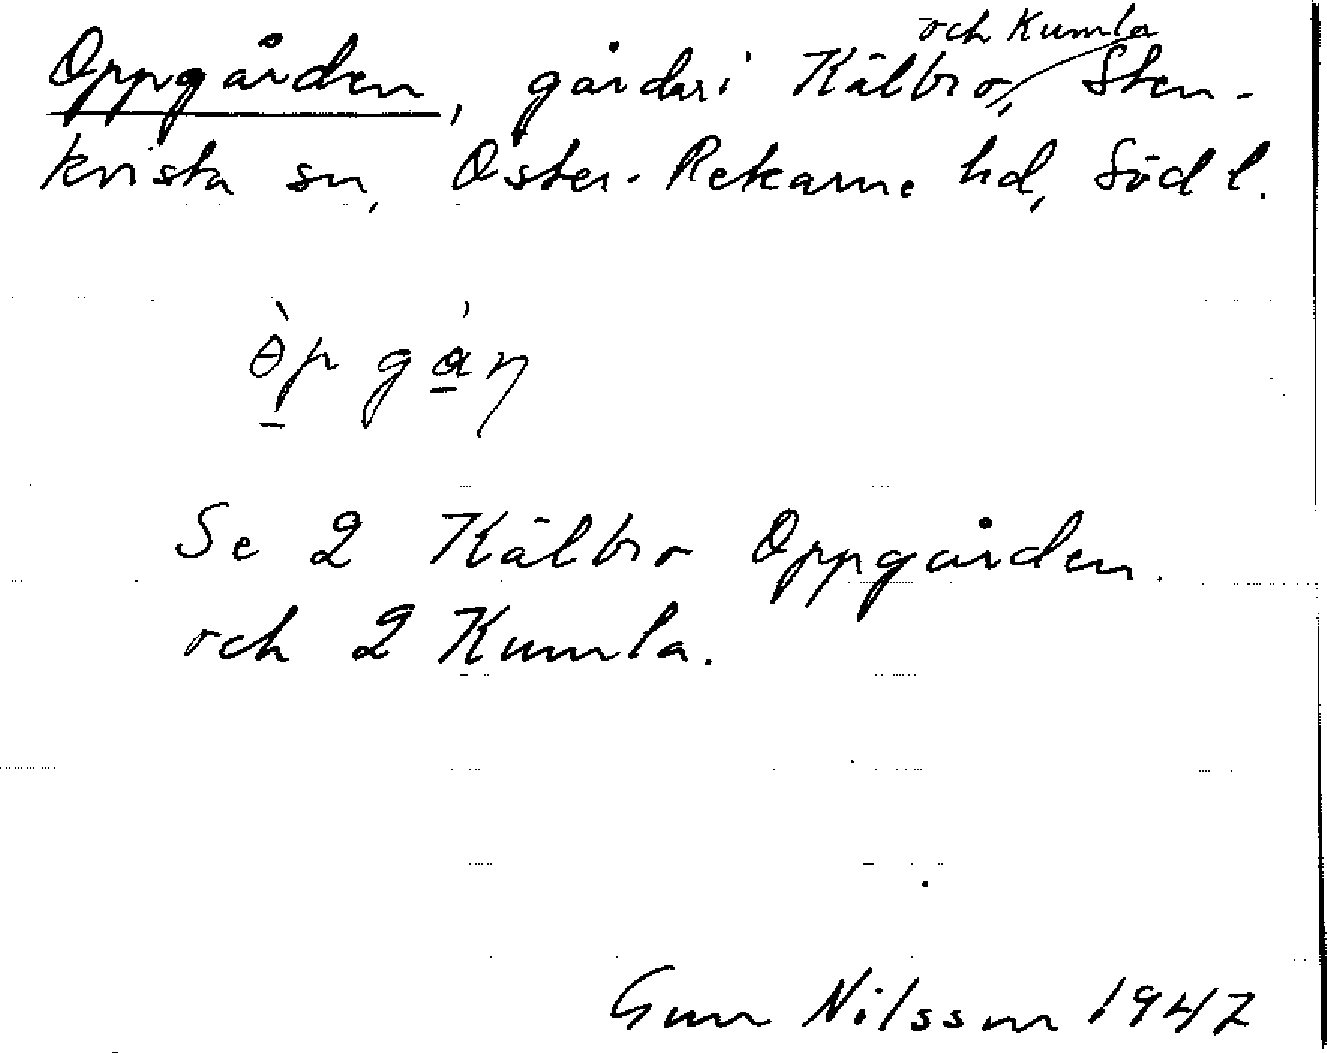 och Kumla
Oppgården, gårdar i Kälbro, Sten-
kvista sn, Öster-Rekarne hd, Södl.
Se 2 Kälbro Oppgården
och 2 Kumla.
Gun Nilsson 1947